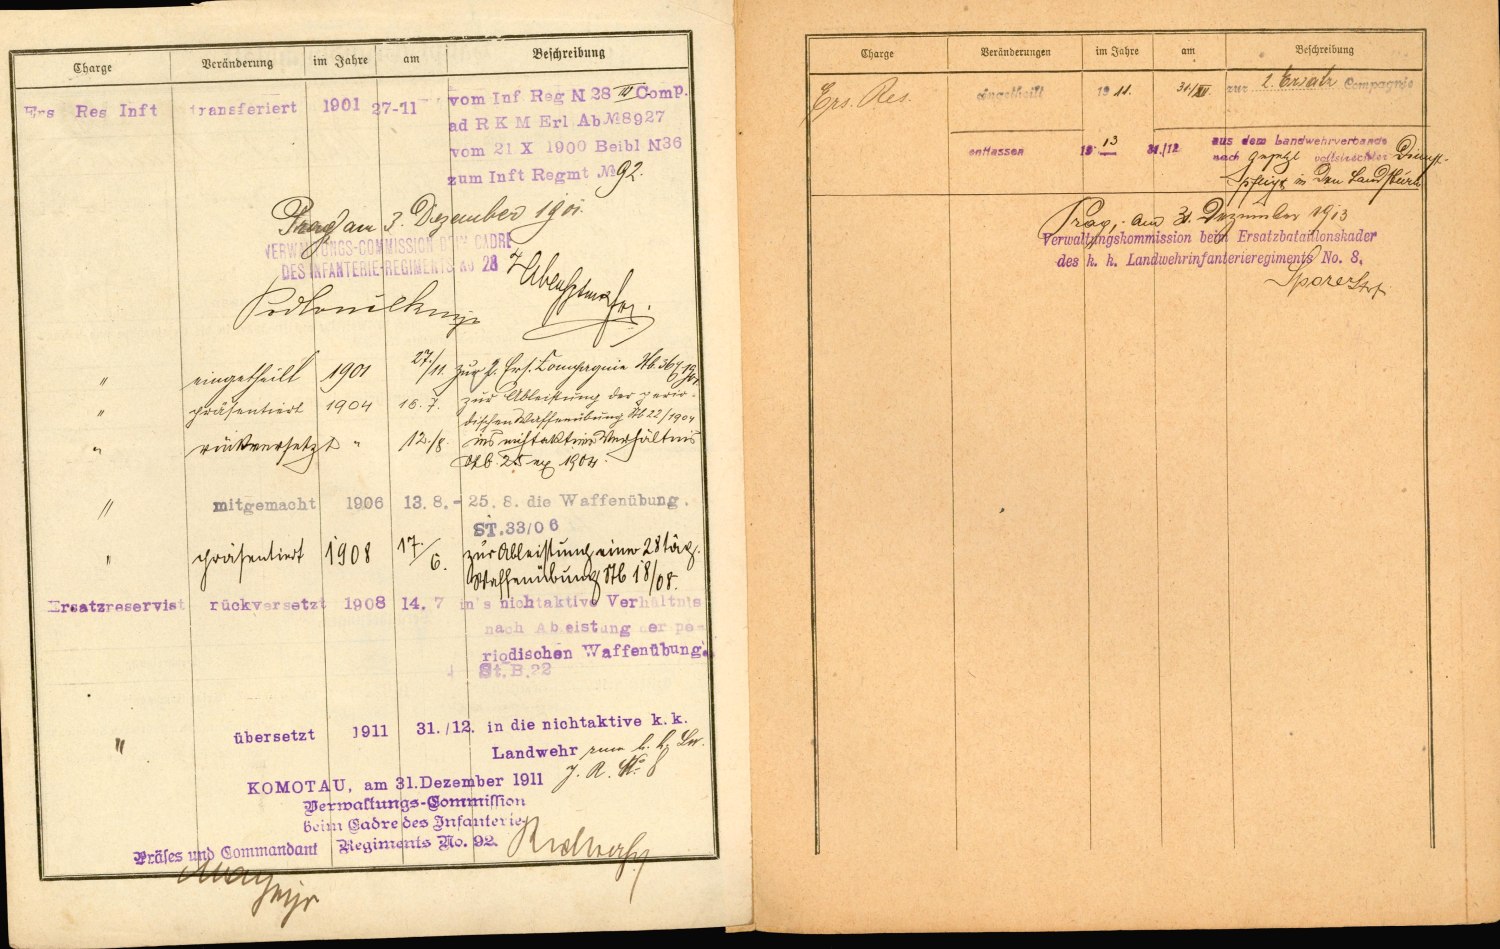 Charge Veränderung im Jahre am Beschreibung
Ers Res Inft transferiert 1901 27-11 vom Inf Reg N 28 IV Comp.
ad R K M Erl Ab № 8927
vom 21 X 1900 Beibl N36
zum Inft Regmt № 92.
Prag am 3. Dezember 1901.
VERWALTUNGS-COMMISSION BEIM CADRE
DES INFANTERIE-REGIMENTS No 28
" eingetheilt 1901 27./11. zur 2. Ers. Compagnie
" präsentiert 1904 16. 7. zur Ableistung der perio-
dischen Waffenübung Stb 22/1904
" rückversetzt " 12./8. ins nichtaktive Verhältnis
Stb. 25 ex 1904.
" mitgemacht 1906 13. 8. - 25. 8. die Waffenübung.
ST.33/06
" präsentiert 1908 17/6. zur Ableistung einer 28täg.
Waffenübung Stb 18/08.
Ersatzreservist rückversetzt 1908 14. 7 in's nichtaktive Verhältnis
nach Abeistung der pe-
riodischen Waffenübung.
St.B.22
" übersetzt 1911 31./12. in die nichtaktive k. k.
Landwehr zum k. k. Lw.
J. R. No 8
KOMOTAU, am 31.Dezember 1911
Verwaltungs-Commission
beim Cadre des Infanterie-
Präses und Commandant Regiments No. 92.
Charge Veränderungen im Jahre am Beschreibung
Ers. Res. eingetheilt 1911. 31/XII zur 2. Ersatz Compagnie
entlassen 1913 31./12 aus dem Landwehrverbande
nach gesetzl vollstreckter Dienst-
pflicht in den Landsturm
Prag, am 31. Dezember 1913
Verwaltungskommission beim Ersatzbataillonskader
des k. k. Landwehrinfanterieregiments No. 8.
Sporer